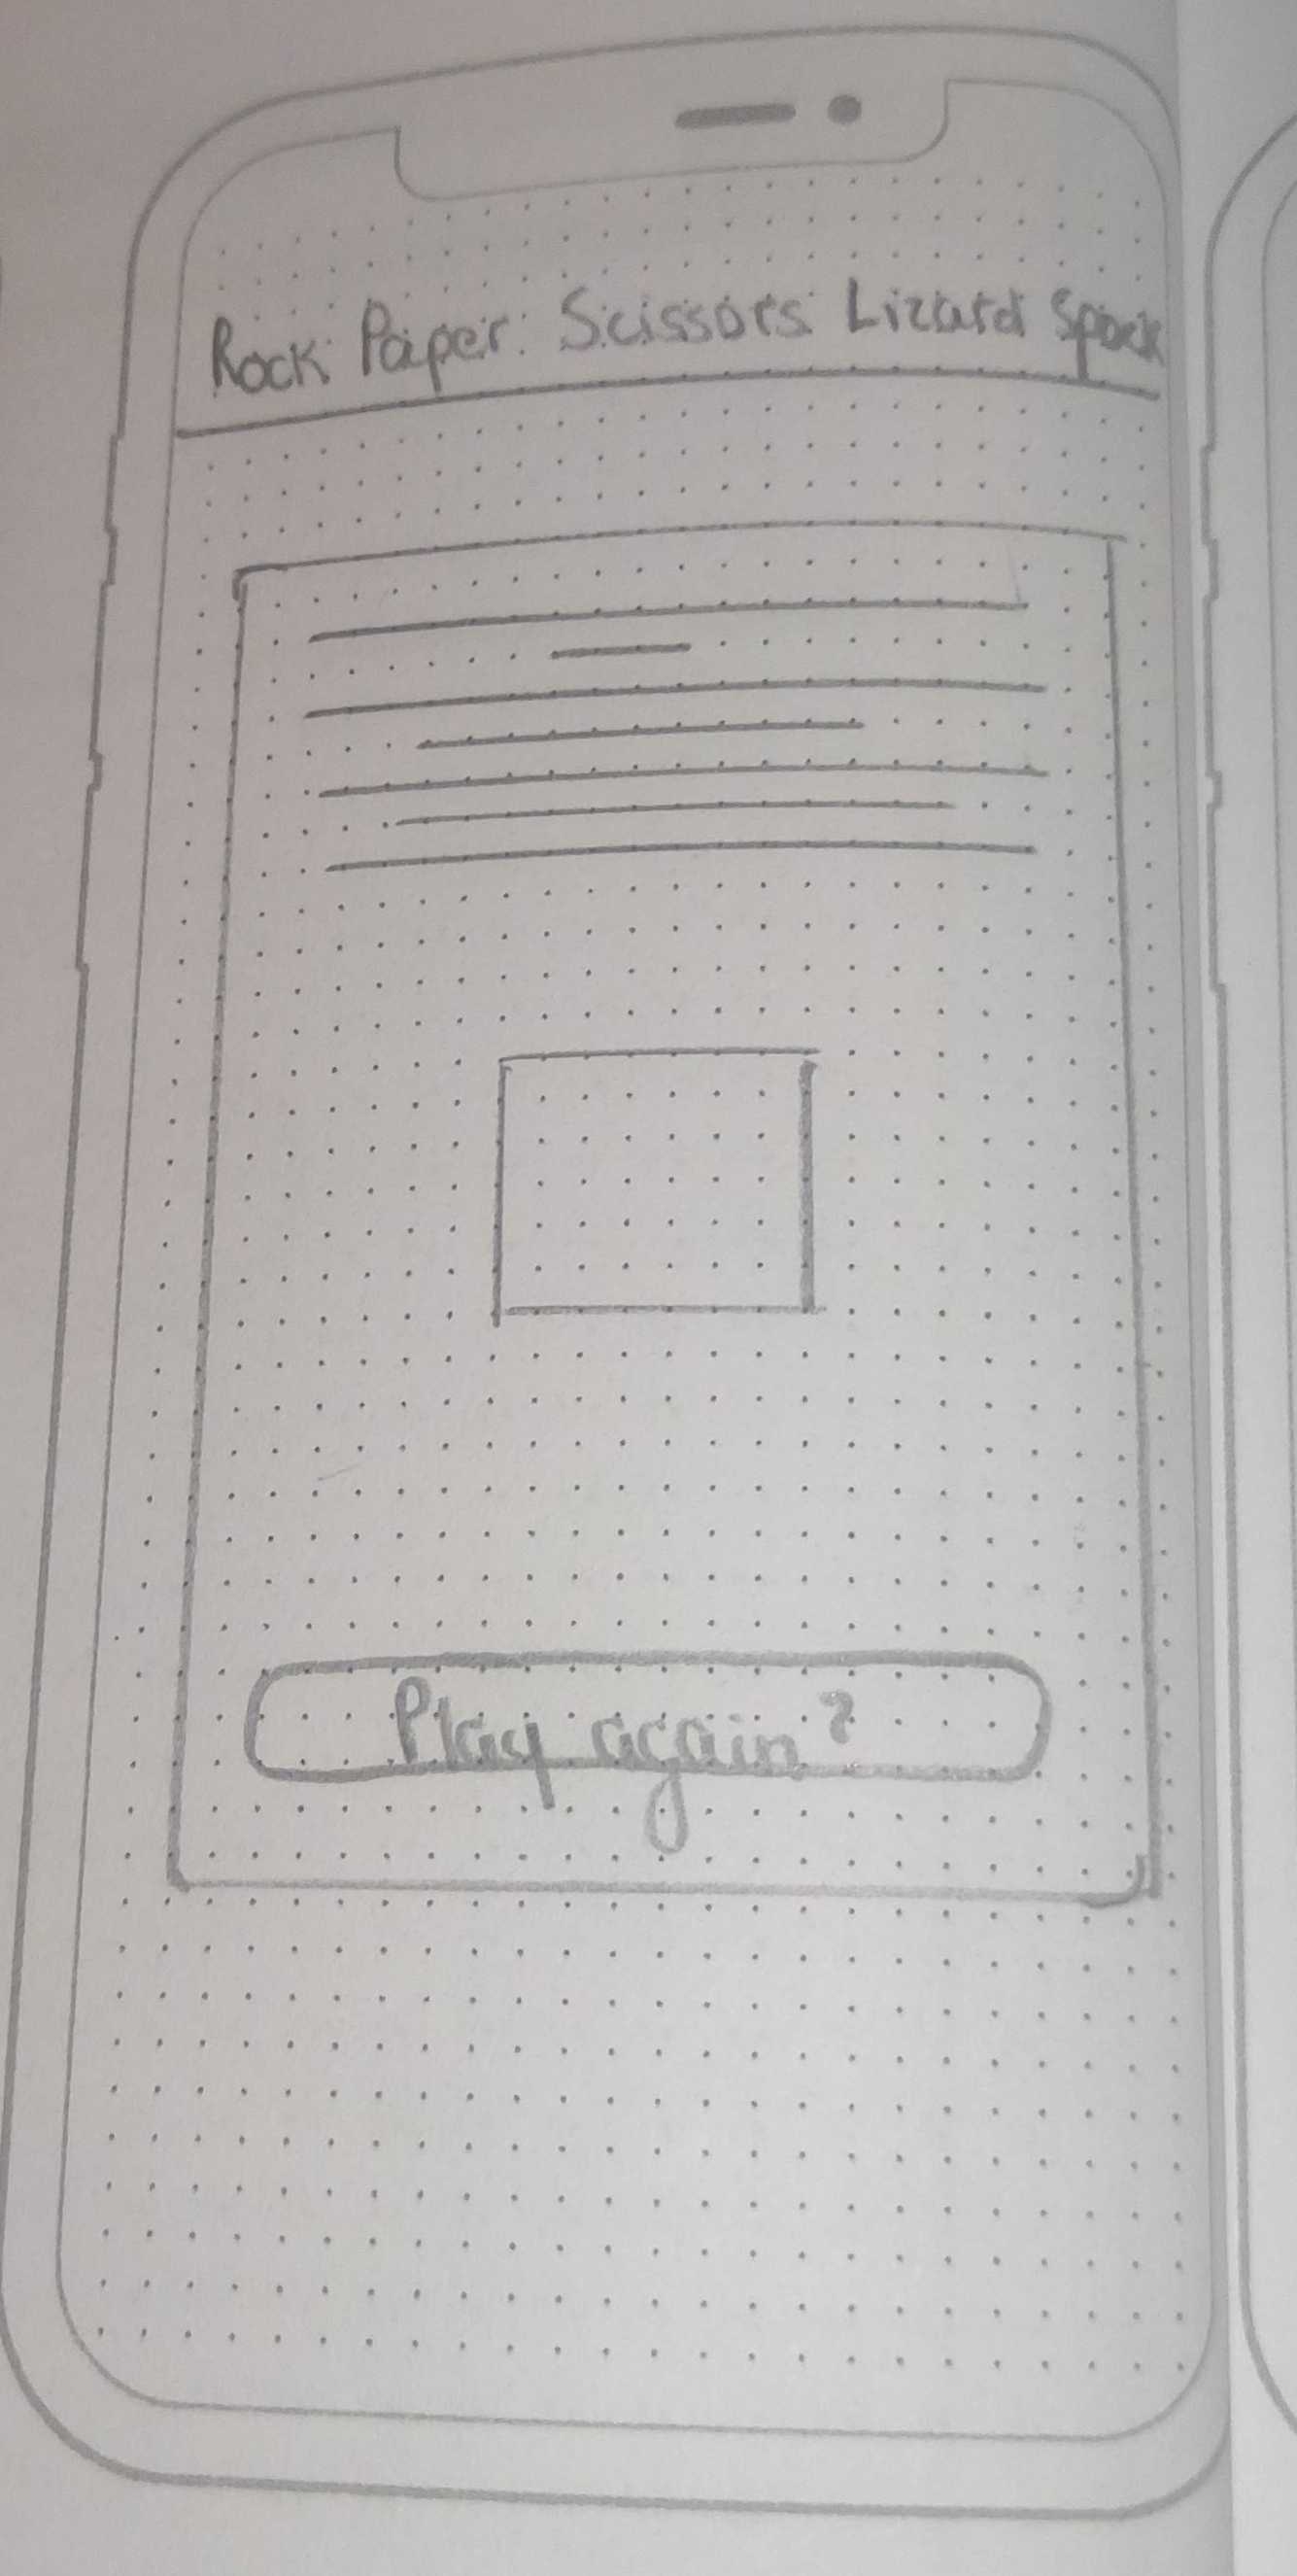 Rock Paper Scissors Lizard Spock
Play again?